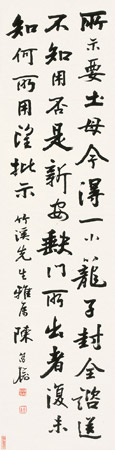 所示要土母今得一小籠子封全諮送
不知用否是新安缺門所出者復未
知何所用望批示 竹溪先生雅屬 陳